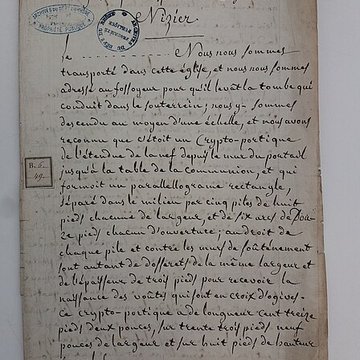 Nizier
Je ........................ Nous nous sommes
transporté dans cette église, et nous nous sommes
adressé au fossoyeur pour qu'il levât la tombe qui
conduit dans le souterrein; nous y sommes
descendu au moyen d'une échelle, et nous avons
reconnu que c'étoit un Crypto-portique
de l'étendue de la nef depuis le mur du portail
jusqu'à la table de la Communion, et qui
formoit un parallellograme rectangle,
séparé dans le milieu par cinq piles de huit
pieds chacune de largeur, et de six arcs de Dou-
ze pieds chacun d'ouverture; au droit de
chaque pile et contre les murs de soutenement
sont autant de dosserets de la même largeur et
de l'épaisseur de trois pieds pour recevoir la
naissance des voûtes qui sont en croix d'ogives.
Ce crypto-portique a de longueur cent treize
pieds deux pouces, sur trente trois pieds neuf
pouces de largeur et sur huit pieds de hauteur
B. 6.
49.